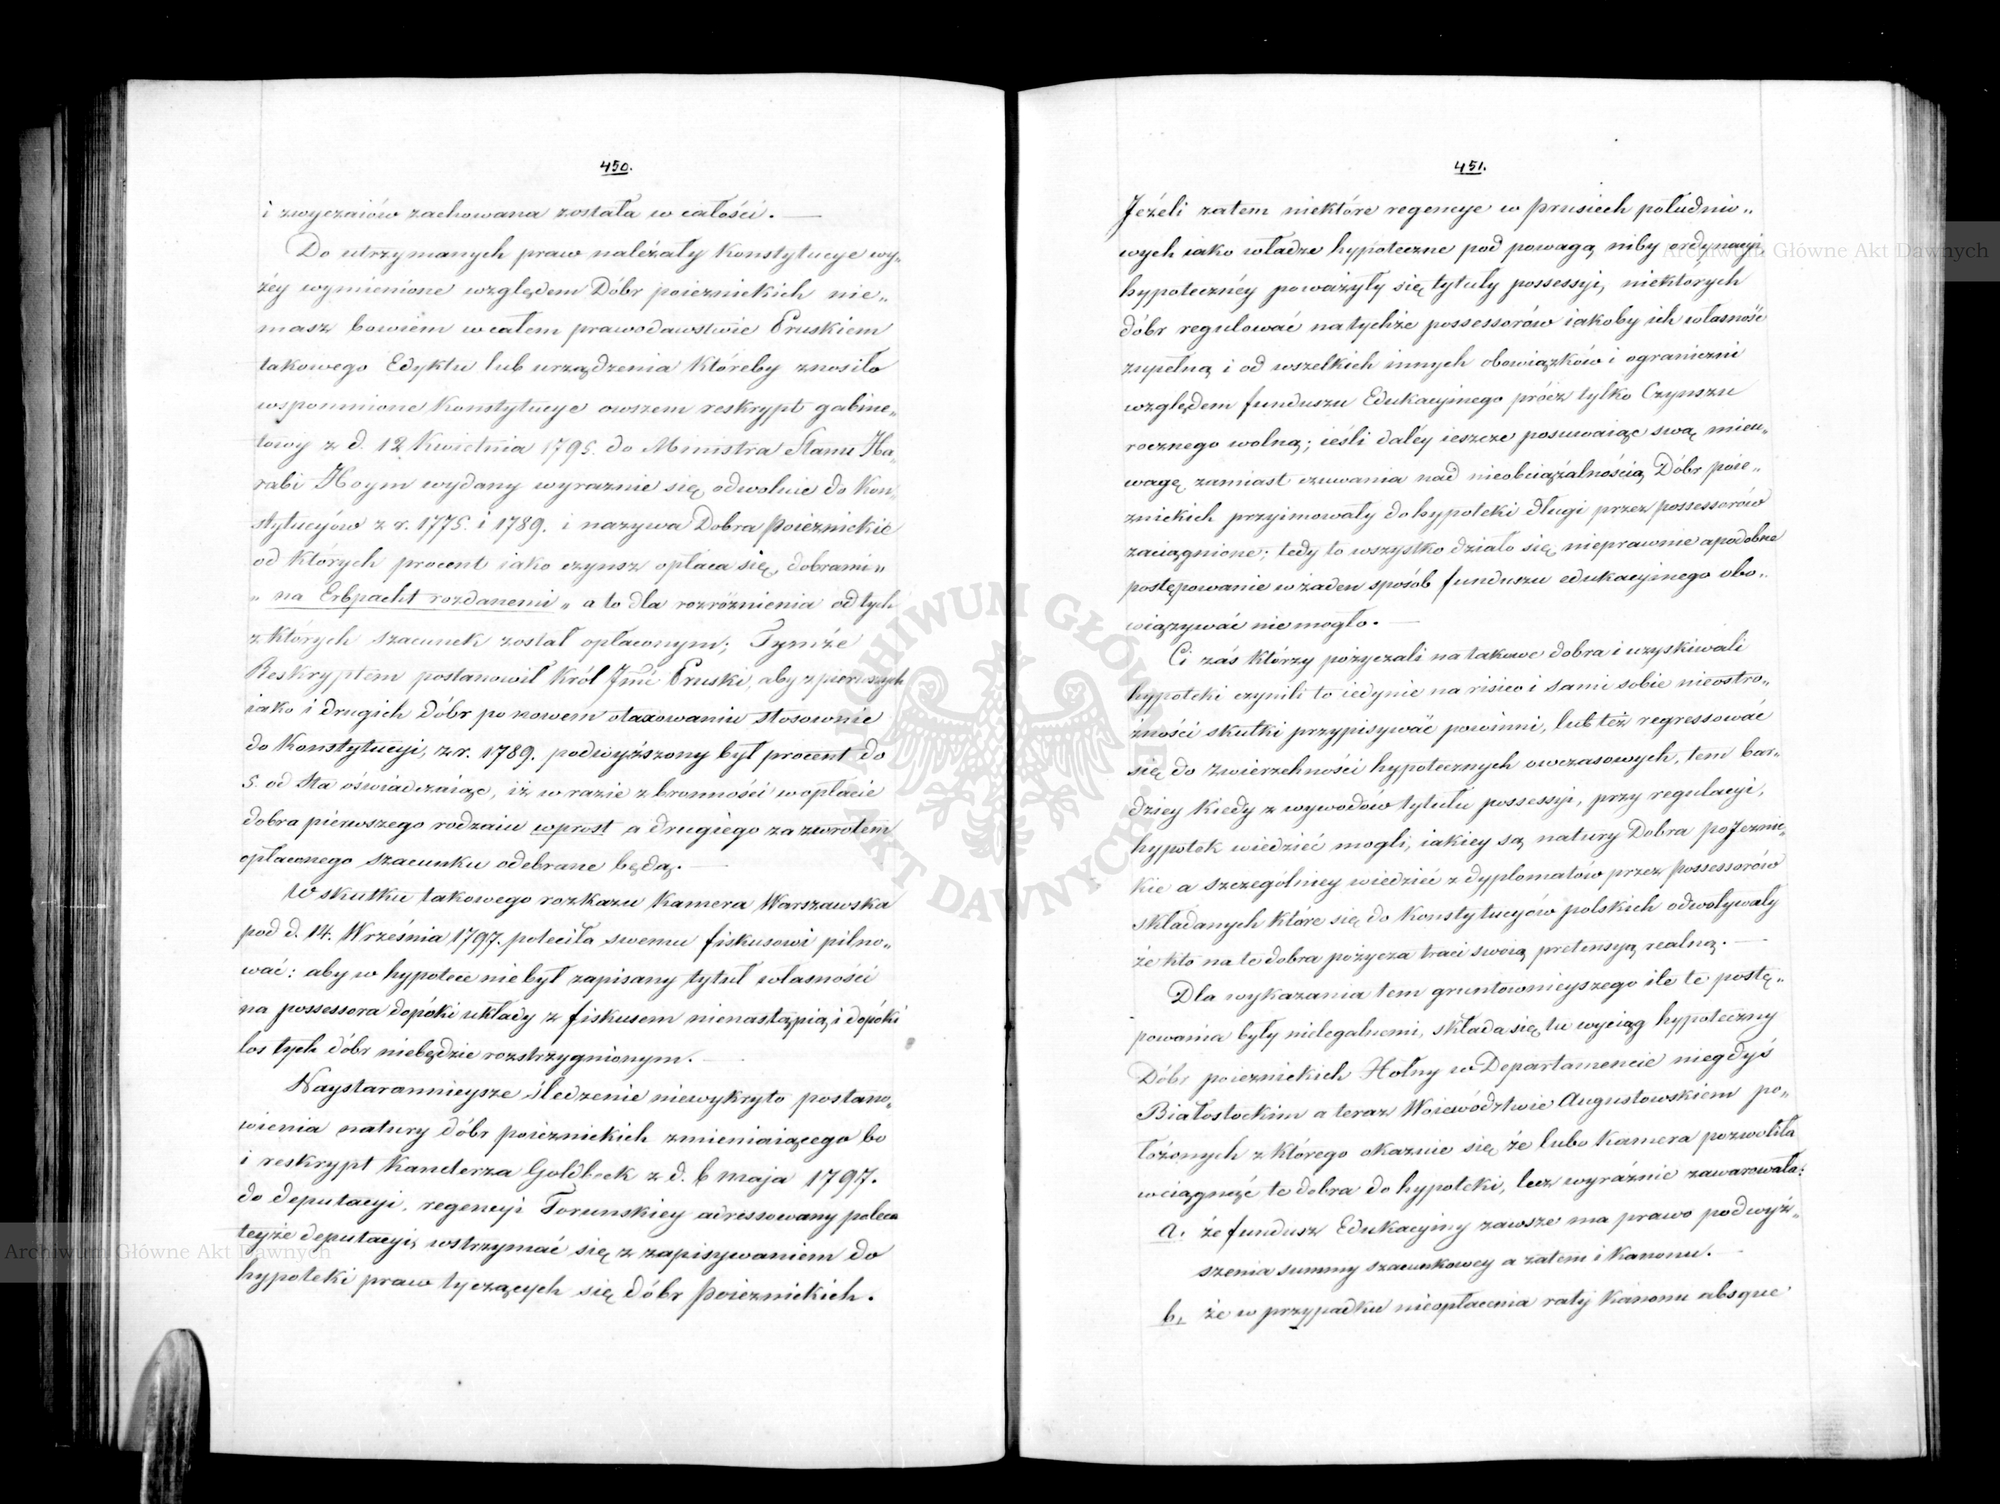 450.
i zwyczaiów zachowana została w całości. —
Do utrzymanych praw należały Konstytucye wy„
żéy wymienione względem Dóbr poieznickich nie„
masz bowiem w całem prawodawstwie Pruskiem
takowego Edyktu lub urządzenia któreby znosiło
wspomnione Konstytucye owszem reskrypt gabine„
towy z d. 12 Kwietnia 1795. do Ministra Stanu Ha„
rabi Hoym wydany wyraznie się odwołuie do Kon„
stytucyów z r. 1775. i 1789. i nazywa Dobra Poieznickie
od których procent iako czynsz opłaca się, dobrami „
„ na Erbpacht rozdanemi „ a to dla rozróżnienia od tych
z których szacunek został opłaconym; Tymże
Reskryptem postanowił Król Jmć Pruski, aby z pierwszych
iako i drugich dóbr po nowem otaxowaniu stosownie
do Konstytucyi, z r. 1789. podwyższony był procent do
5. od sta oświadczaiąc, iż w razie zbronności w opłacie
dobra pierwszego rodzaiu wprost a drugiego za zwrotem
opłaconego szacunku odebrane będą. —
W skutku takowego rozkazu Kamera Warszawska
pod d. 14. Września 1797. poleciła swemu fiskusowi pilno„
wać: aby w hypotece nie był zapisany tytuł własności
na possessora dopóki układy z fiskusem nienastąpią i dopóki
los tych dóbr niebędzie rozstrzygnionym. —
Naystarannieysze śledzenie niewykryło postano„
wienia natury dóbr poieznickich zmieniaiącego bo
i reskrypt Kanclerza Goldbeck z d. 6 maja 1797.
do deputacyi, regencyi Torunskiey adressowany poleca
teyże deputacyi, wstrzymać się z zapisywaniem do
hypoteki praw tyczących się dóbr Poieznickich.
451.
Jeżeli zatem niektóre regencye w Prusiech południo„
wych iako władze hypoteczne pod powagą niby ordynacyi
hypotecznéy poważyły się tytuły possessyi, niektórych
dóbr regulować na tychże possessorów iakoby ich własność
zupełną i od wszelkich innych obowiązków i ograniczni
względem funduszu Edukacyinego prócz tylko Czynszu
rocznego wolną; ieśli daléy ieszcze posuwaiąc swą nieu„
wagę zamiast czuwania nad nieobciążalnością Dóbr poie„
znickich przyimowały do hypoteki długi przez possessorów
zaciągnione; tedy to wszystko działo się nieprawnie a podobne
postępowanie w żaden sposób funduszu edukacyinego obo„
wiązywać nie mogło. —
Ci zaś którzy pożyczali na takowe dobra i uzyskiwali
hypoteki czynili to iedynie na risico i sami sobie nieostro„
żności skutki przypisywać powinni, lub też regressować
się do zwierzchności hypotecznych owczasowych, tem bar„
dziey kiedy z wywodów tytułu possessyi, przy regulacyi,
hypotek wiedzieć mogli, iakiey są natury Dobra poJeznic„
kie a szczególniey wiedzieć z dyplomatów przez possessorów
składanych które się do Konstytucyów polskich odwoływały
że kto na te dobra pożycza traci swoią pretensyą realną. —
Dla wykazania tem gruntownieyszego ile te postę„
powania były nielegalnemi, składa się tu wyciąg hypoteczny
Dóbr poieznickich Hołny w Departamencie niegdyś
Białostockim a teraz Woiewództwie Augustowskiem po„
łożonych z którego okazuie się że lubo Kamera pozwoliła
wciągnąć te dobra do hypoteki, lecz wyráznie zawarowała:
a. że fundusz Edukacyiny zawsze ma prawo podwyż„
szenia summy szacunkowey a zatem i Kanonu. —
b, że w przypadku nieopłacenia raty Kanonu absque
Archiwum Główne Akt Dawnych
Archiwum Główne Akt Dawnych
ARCHIWUM GŁÓWNE AKT DAWNYCH